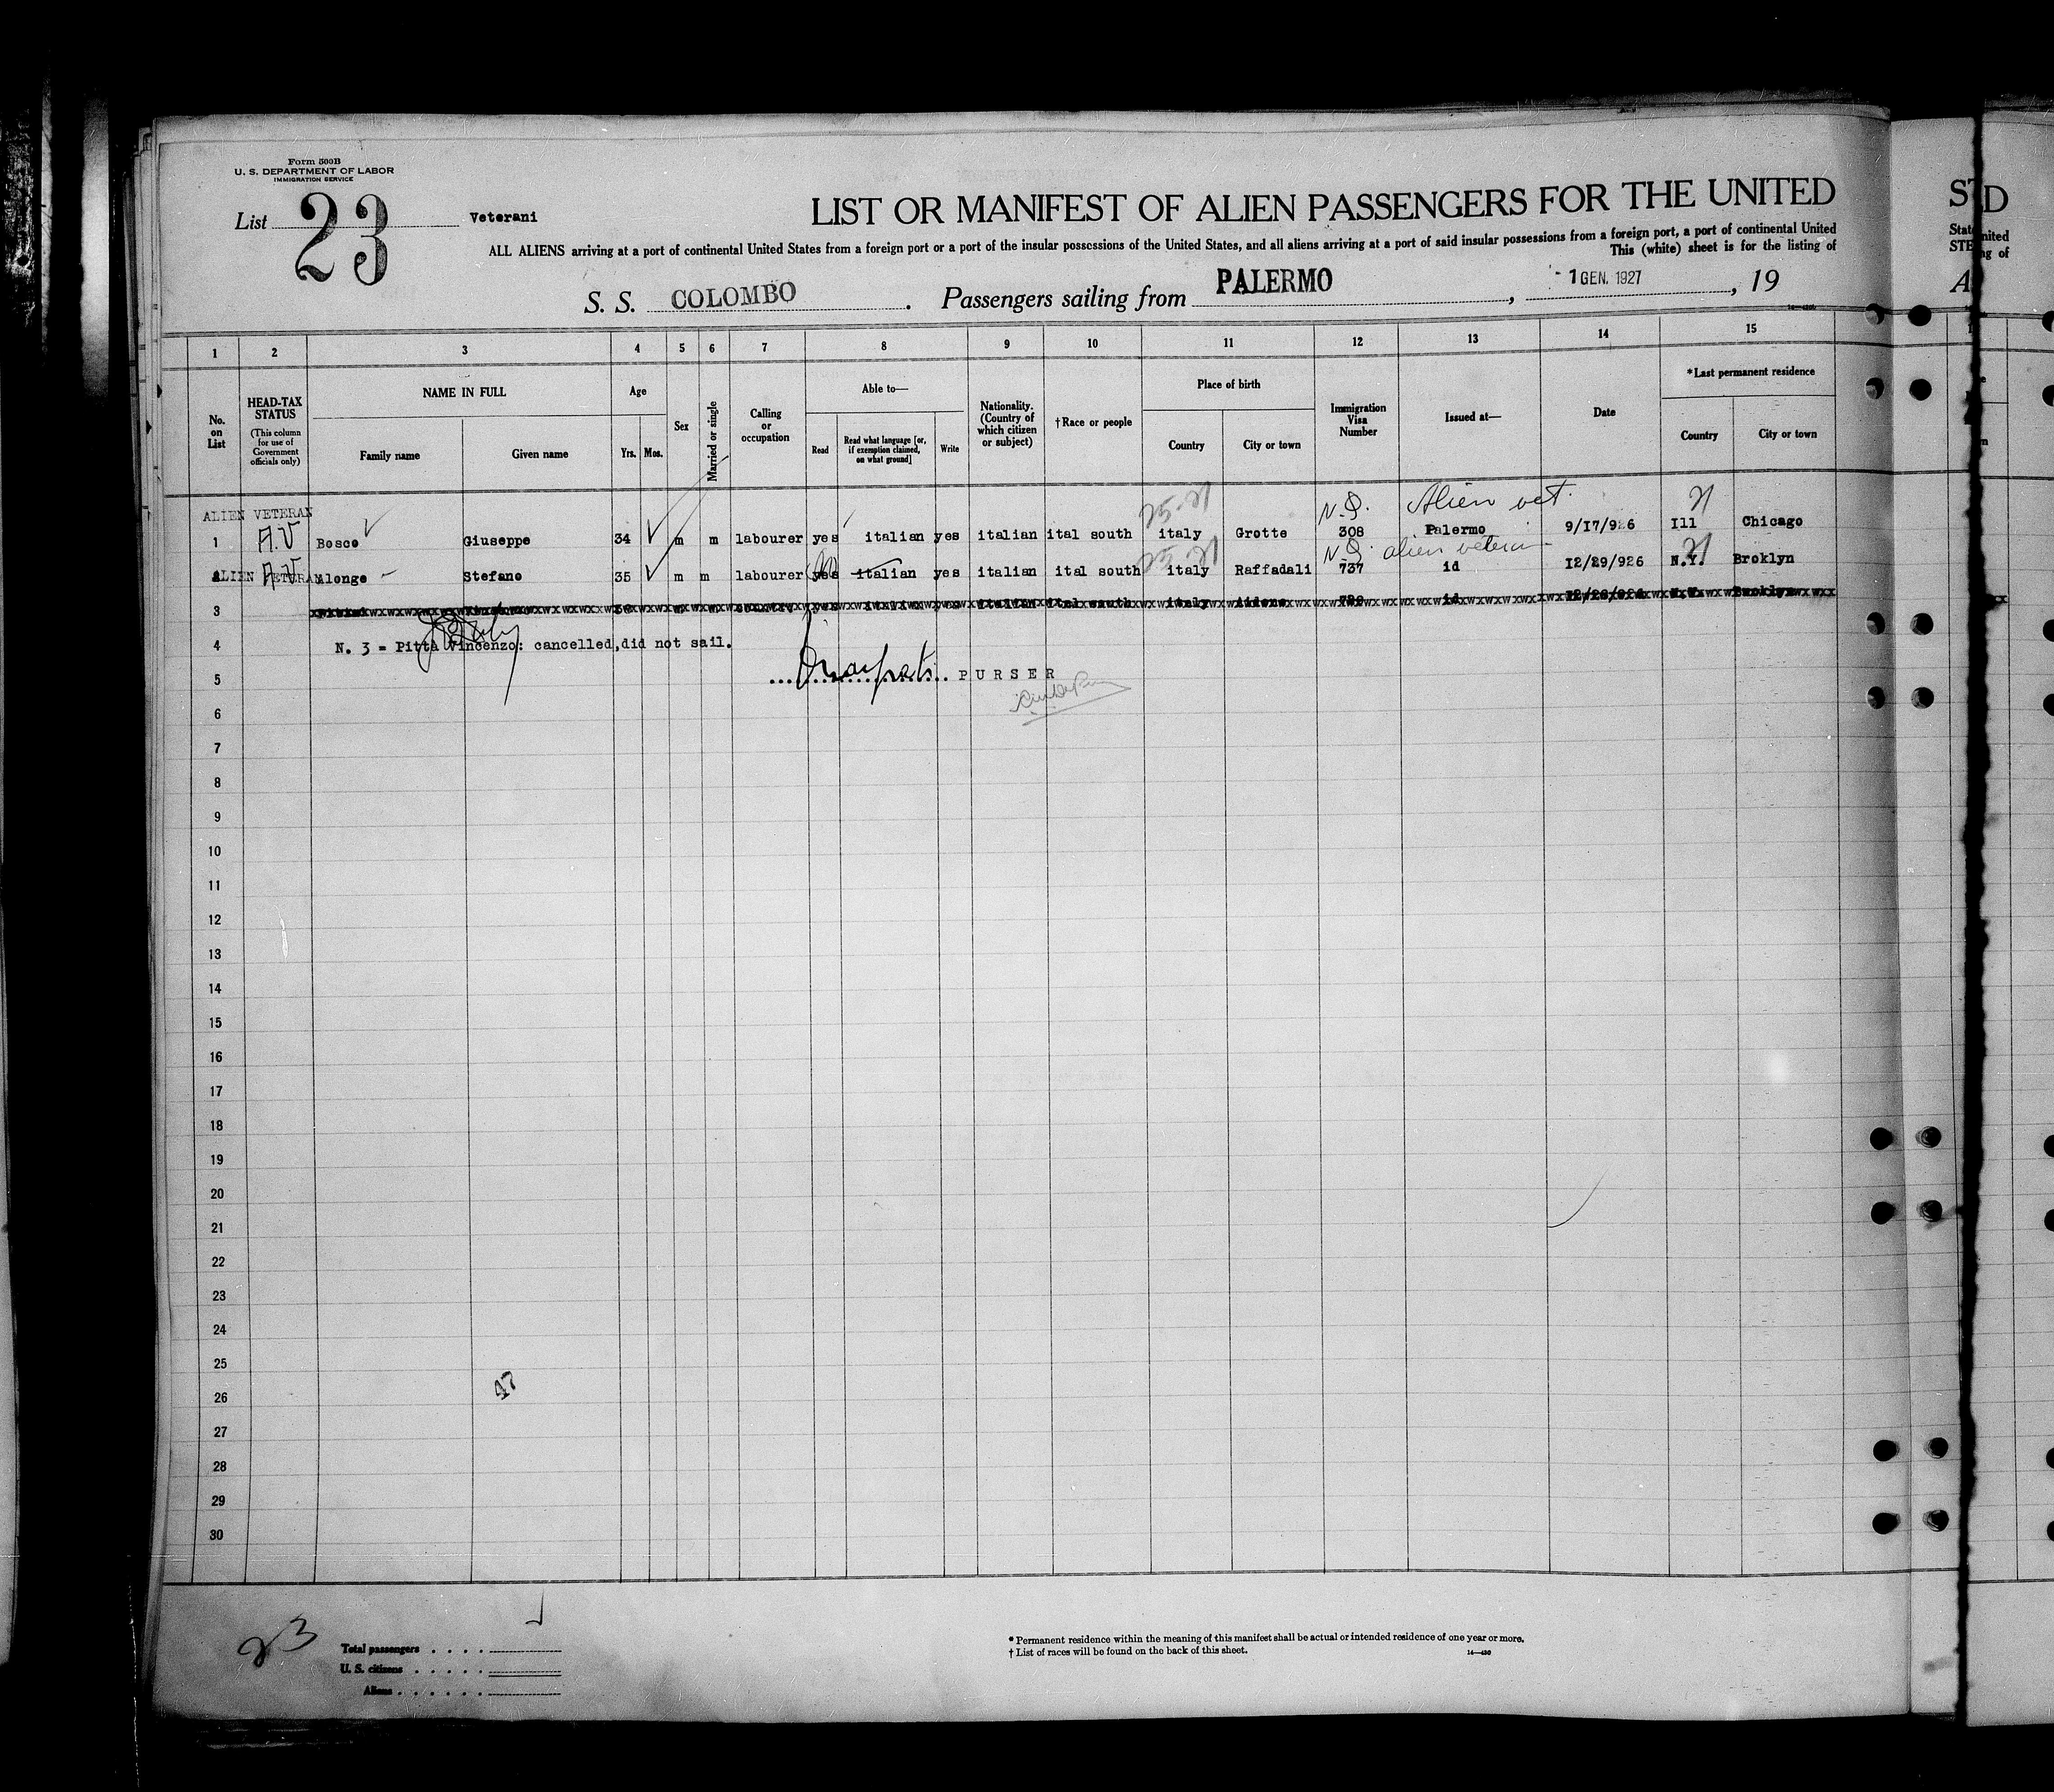 Form 500B
U. S. DEPARTMENT OF LABOR
IMMIGRATION SERVICE
List 23 Veterani
LIST OR MANIFEST OF ALIEN PASSENGERS FOR THE UNITED
ALL ALIENS arriving at a port of continental United States from a foreign port or a port of the insular possessions of the United States, and all aliens arriving at a port of said insular possessions from a foreign port, a port of continental United
This (white) sheet is for the listing of
S. S. COLOMBO. Passengers sailing from PALERMO, 1 GEN. 1927, 19
1 2 3 4 5 6 7 8 9 10 11 12 13 14 15
No. on List
HEAD-TAX STATUS (This column for use of Government officials only)
NAME IN FULL
Family name Given name
Age
Yrs. Mos.
Sex
Married or single
Calling or occupation
Able to—
Read
Read what language [or, if exemption claimed, on what ground]
Write
Nationality. (Country of which citizen or subject)
†Race or people
Place of birth
Country City or town
Immigration Visa Number
Issued at—
Date
*Last permanent residence
Country City or town
ALIEN VETERAN 25-21 N.Q. Alien vet. 21
1 A.V Bosco Giuseppe 34 m m labourer yes italian yes italian ital south italy Grotte 308 Palermo 9/17/926 Ill Chicago
25-21 N.Q. alien veteran 21
2 ALIEN VETERAN A.V. Alonge Stefano 35 m m labourer yes italian yes italian ital south italy Raffadali 737 id 12/29/926 N.Y. Broklyn
3 italian ital south italy id Broklyn
4 N. 3 = Pitta Vincenzo: cancelled,did not sail.
5 PURSER
6
7
8
9
10
11
12
13
14
15
16
17
18
19
20
21
22
23
24
25
26
27
28
29
30
47
23
Total passengers
U. S. citizens
Aliens
* Permanent residence within the meaning of this manifest shall be actual or intended residence of one year or more.
† List of races will be found on the back of this sheet.
14—430